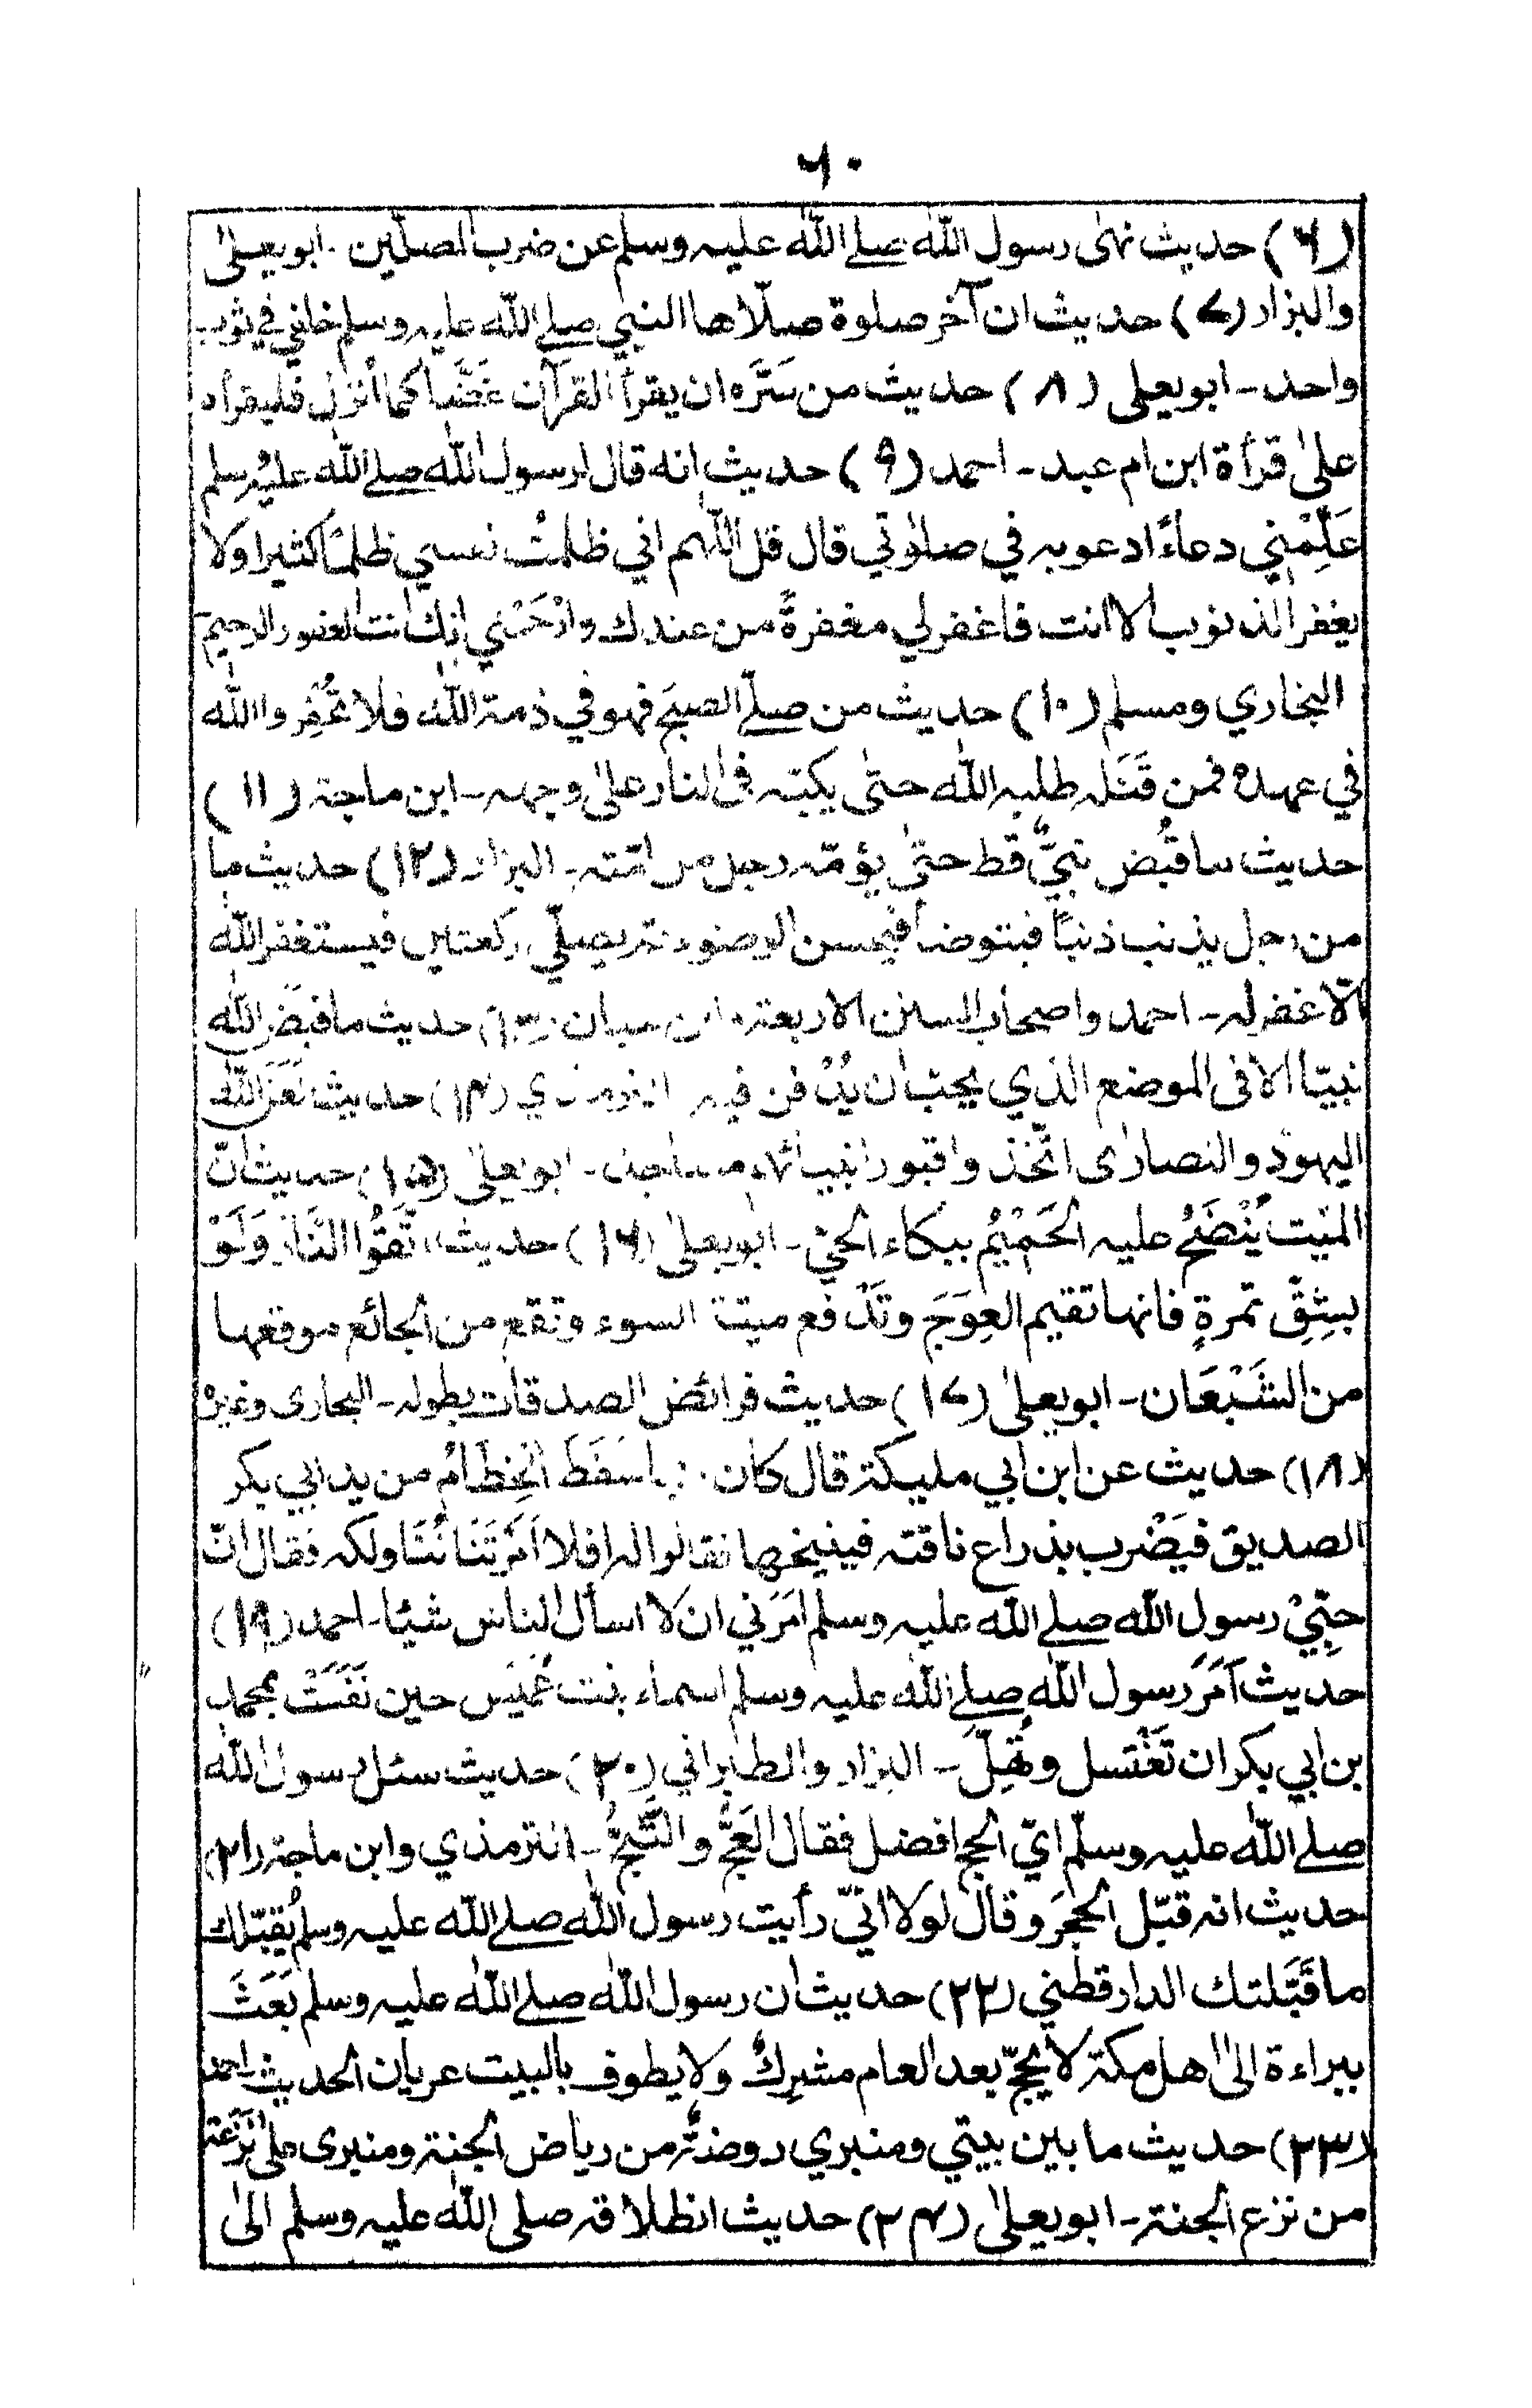 ٦٠
(٦) حديث نهٰى رسول الله صلے الله عليه وسلم عن ضرب المصلّين - ابو يعلىٰ
والبزار (٧) حديث ان آخر صلوة صلّاها النبي صلے الله عليه وسلم خلفي في ثوب
واحد - ابو يعلى (٨) حديث من سَرَّه ان يقرأ القرآن غَضًّا كما أُنزل فليقرأه
علىٰ قرأة ابن ام عبد - احمد (٩) حديث انه قال لرسول الله صلے الله عليه وسلم
عَلِّمْنِي دعاءً ادعو به في صلوٰتي قال قل اللّٰهم اني ظلمتُ نفسي ظلمًا كثيرا ولا
يغفر الذنوب الا انت فاغفر لي مغفرةً من عندك وارْحَمْني انك انت الغفور الرحيم
البخاري ومسلم (١٠) حديث من صلّے الصبحَ فهو في ذمة الله فلا تُخْفِروا الله
في عهده فمن قَتَله طلبه الله حتى يكبّه فى النار علىٰ وجهه - ابن ماجة (١١)
حديث ما قُبِض نبيٌّ قط حتىٰ يؤمّه رجل من امّته - البزار (١٢) حديث ما
من رجل يذنب ذنبًا فيتوضأ فيحسن الوضوء ثم يصلّي ركعتين فيستغفر الله
الّا غفر له - احمد واصحاب السنن الاربعة وابن حبان (١٣) حديث ما قبضَ الله
نبيّا الا فى الموضع الذي يحب ان يُدْفن فيه الترمذي (١٤) حديث لَعَنَ الله
اليهودَ والنصارٰى اتّخذوا قبور انبيائهم مساجد - ابو يعلىٰ (١٥) حديث انّ
الميّت يُنْضَحُ عليه الحَمِيْمُ ببكاء الحيّ - ابو يعلىٰ (١٦) حديث اتَّقُوا النَّارَ وَلَوْ
بِشِقّ تمرةٍ فانها تقيم العِوَجَ وتَدْفع ميتة السوء وتقع من الجائع موقعها
من الشَبْعَان - ابو يعلىٰ (١٧) حديث فرائض الصدقات بطوله - البخارى وغيره
(١٨) حديث عن ابن ابي مليكة قال كان ربما سَقَطَ الخِطَامُ من يد ابي بكر
الصديق فيَضْرب بذراع ناقته فينيخها فقالوا له افلا اَمَرْتَنَا نُنَاولكه فقال انّ
حِبِّيْ رسول الله صلے الله عليه وسلم اَمَرَني ان لا اسأل الناس شيئا - احمد (١٩)
حديث اَمَرَ رسول الله صلے الله عليه وسلم اسماء بنت عُمَيْس حين نَفَسَتْ بمحمد
بن ابي بكر ان تَغْتسل وتُهِلّ - البزار والطبراني (٢٠) حديث سئل رسول الله
صلے الله عليه وسلّم ايّ الحج افضل فقال العَجُّ والثَّجُّ - الترمذي وابن ماجة (٢١)
حديث انه قبّل الحجَرَ وقال لولا انّي رأيت رسول الله صلے الله عليه وسلم يُقبّلك
ما قَبَّلتك الدارقطني (٢٢) حديث ان رسول الله صلے الله عليه وسلم بَعَثَ
ببراءة الىٰ اهل مكة لا يحجّ بعد العام مشركٌ ولا يطوف بالبيت عريان الحديث احمد
(٢٣) حديث ما بين بيتي ومنبري روضةٌ من رياض الجنة ومنبرى علىٰ تُرْعَة
من ترع الجنة - ابو يعلىٰ (٢٤) حديث انطلاقه صلى الله عليه وسلم الىٰ